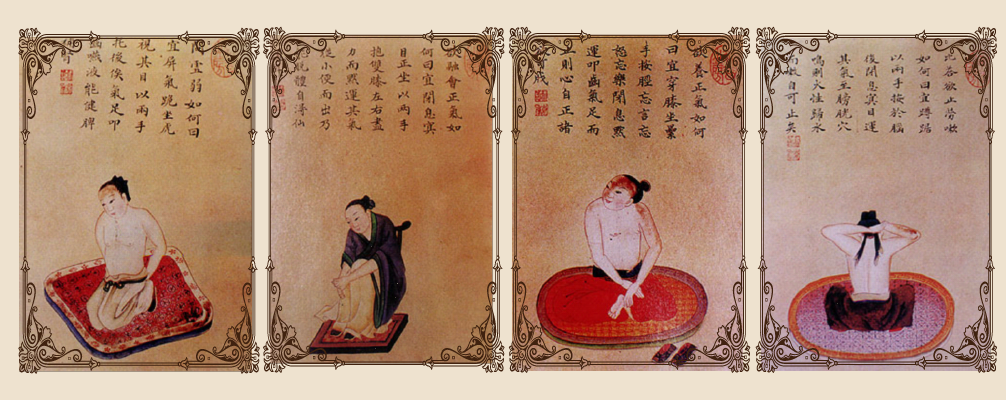 虛弱如何曰
宜屏氣跪坐虎
視其目以兩手
托後俟氣足叩
嚥液能健脾
融會正氣如
何曰宜閉息寞
目正坐以兩手
抱雙膝左右盡
力而黙運其氣
從小便而出乃
體自得仙
養正氣如何
曰宜穿膝坐
手按脛忘言忘
怒忘樂閉息黙
運叩齒氣足而
則心自正諸
賤
各欲止嗽
如何曰宜蹲踞
以兩手按於腦
後閉息寞目運
其氣至膀胱穴
鳴大歸永
自可止矣